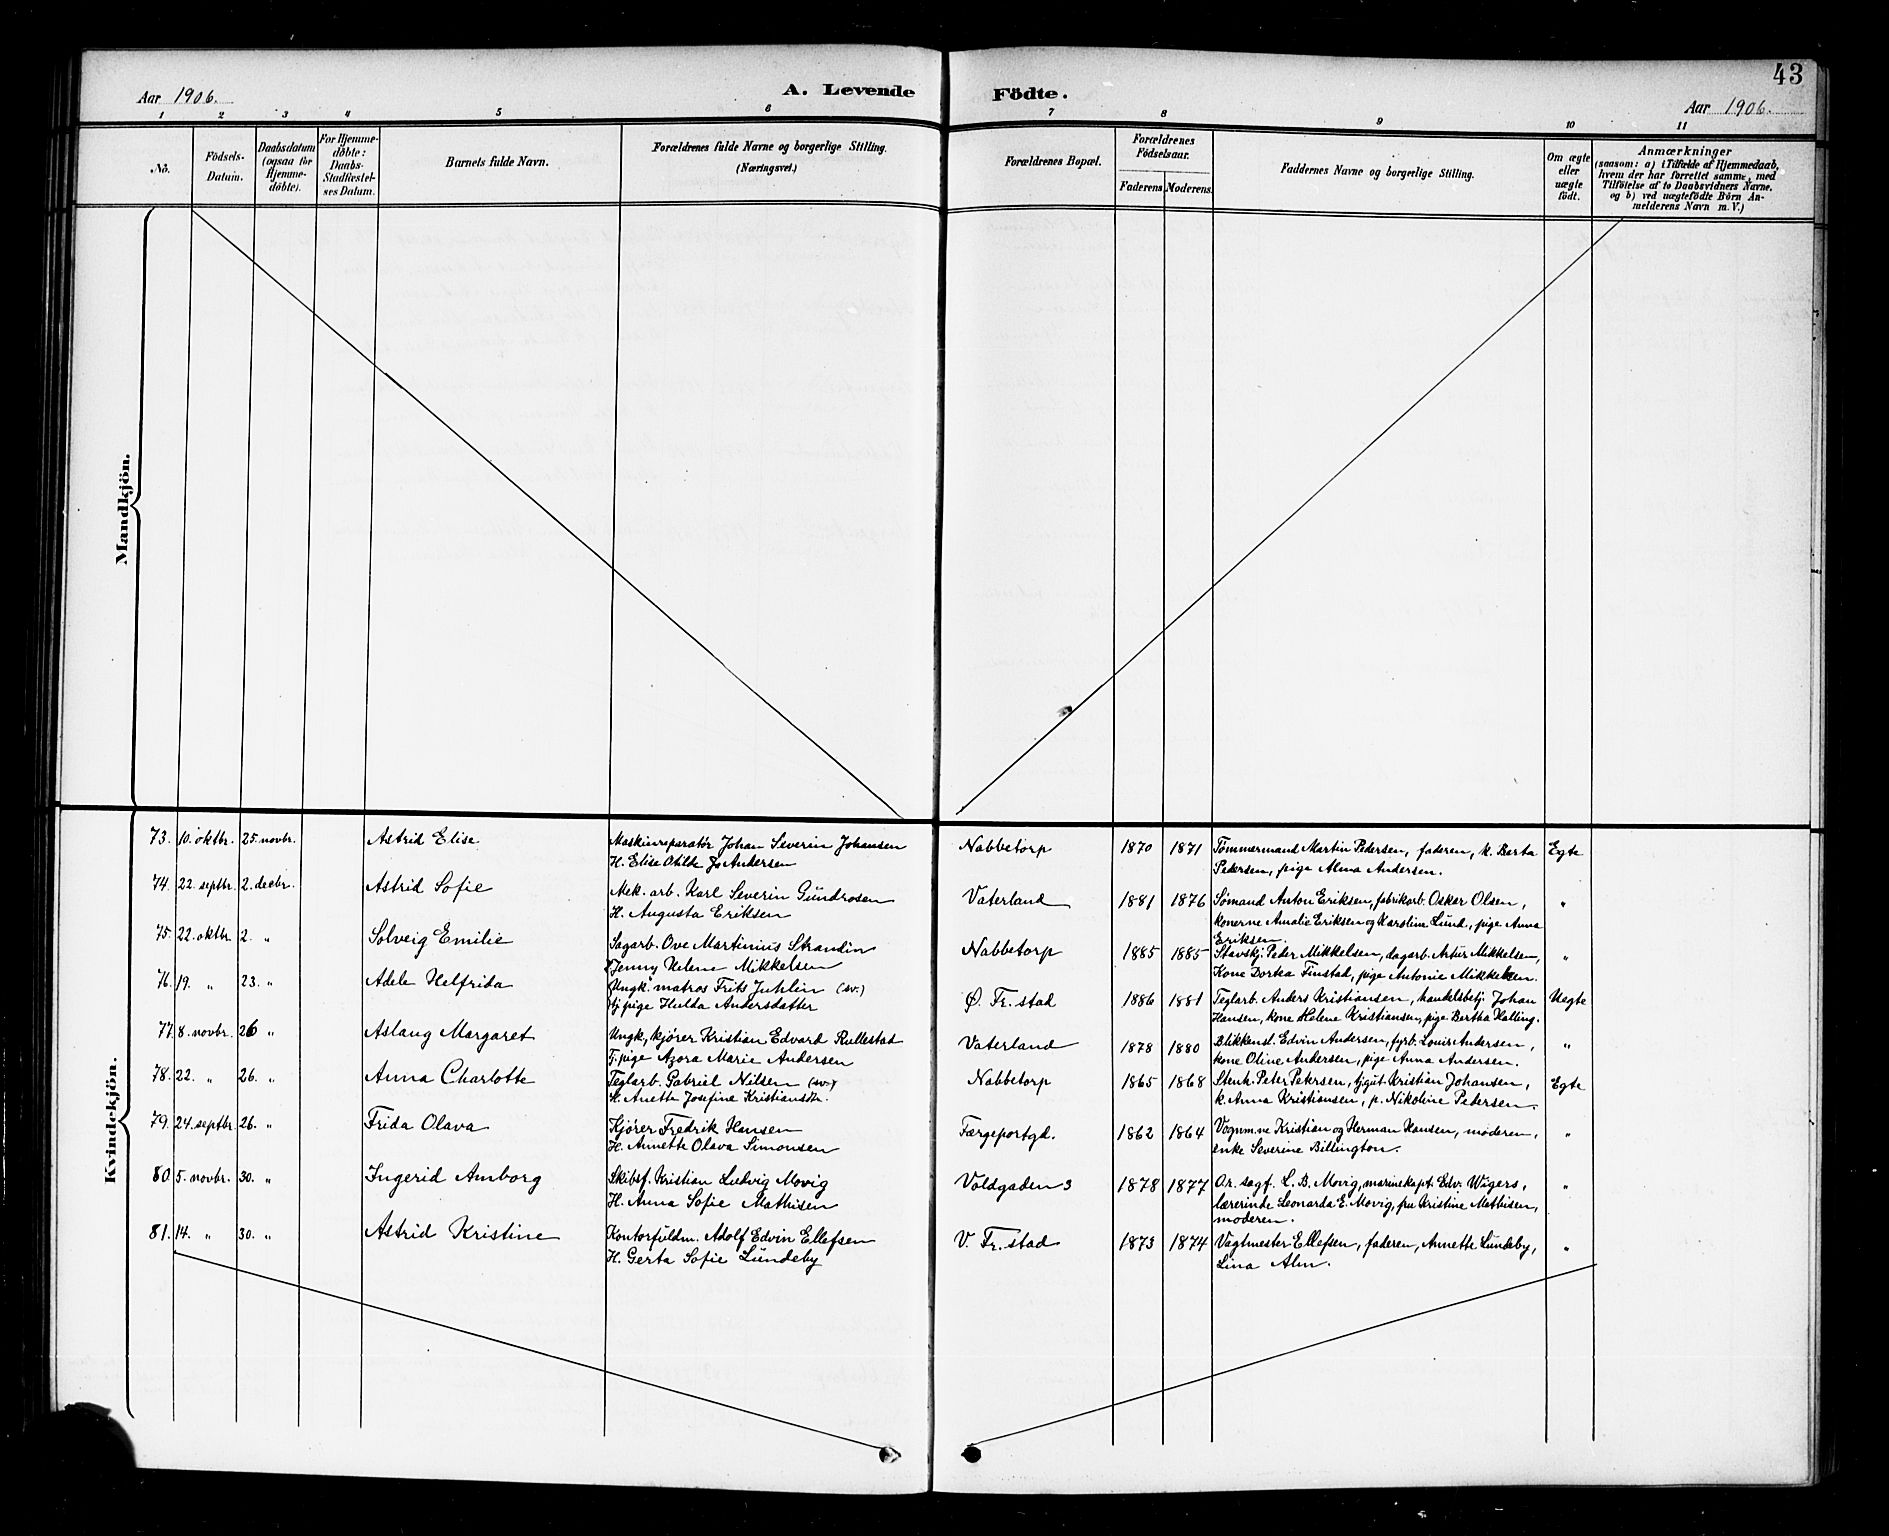 43
Aar 1906.
A. Levende
Födte.
Aar 1906.
1 2 3 4 5 6 7 8 9 10 11
No.
Födsels-
Datum.
Daabsdatum
(ogsaa for
Hjemme-
döbte).
For Hjemme-
döbte:
Daabs-
Stadfæstel-
ses Datum.
Barnets fulde Navn.
Forældrenes fulde Navne og borgerlige Stilling.
(Næringsvei.)
Forældrenes Bopæl.
Forældrenes
Födselsaar.
Faderens.
Moderens.
Faddernes Navne og borgerlige Stilling.
Om ægte
eller
uægte
födt.
Anmærkninger
(saasom: a) i Tilfælde af Hjemmedaab,
hvem der har forrettet samme, med
Tilföielse af to Daabsvidners Navne.
og b) ved uægtefödte Börn An-
melderens Navn m. V.)
Mandkjön.
Kvindekjön.
73. 10. oktbr. 25. novbr. Astrid Elise Maskinreparatør Johan Severin Johansen Nabbetorp 1870 1871 Tømmermand Martin Pedersen, faderen, k. Berta Egte
H. Elise Otilde Andersen Pedersen, pige Alma Andersen.
74. 22. septbr. 2. decbr. Astrid Sofie Mek. arb. Karl Severin Gundrosen Vaterland 1881 1876 Sømand Anton Eriksen, fabrikarb. Oskar Olsen, "
H. Augusta Eriksen konerne Amalie Eriksen og Karoline Lund, pige Anna
Eriksen.
75. 22. oktbr. 2. " Solveig Emilie Sagarb. Ove Martinius Strandin Nabbetorp 1885 1885 Stavskj. Peder Mikkelsen, dagarb. Artur Mikkelsen, "
Jenny Helene Mikkelsen Kone Dorka Finstad, pige Antonie Mikkelsen.
76. 19. " 23. " Adele Helfrida Ungk. matros Frits Juhlin (sv.) Ø. Fr.stad 1886 1881 Teglarb. Anders Kristiansen, handelsbetj. Johan Uegte
tj. pige Hulda Andersdatter Hansen, kone Helene Kristiansen, pige Bertha Halling.
77. 8. novbr. 26 " Aslaug Margaret Ungk., kjører Kristian Edvard Rullestad Vaterland 1878 1880 Blikkensl. Edvin Andersen, fyrb. Louis Andersen, "
F. pige Azora Marie Andersen kone Oline Andersen, pige Anna Andersen.
78. 22. " 26. " Anna Charlotte Teglarb. Gabriel Nilsen (sv.) Nabbetorp 1865 1868 Stenh. Peter Petersen, tjgut. Kristian Johansen, Egte
H. Anette Josefine Kristiansdtr. k. Anna Kristiansen, p. Nikoline Pedersen.
79. 24. septbr. 26. " Frida Olava Kjører Fredrik Hansen Færgeportgd. 1862 1864 Vognm.ne Kristian og Herman Hansen, moderen, "
H. Annette Olava Simonsen enke Severine Billington.
80. 5. novbr. 30. " Ingerid Amborg Skibsf. Kristian Ludvig Movig Voldgaden 3 1878 1877 O.r. sagf. L. B. Movig, marinekapt. Edv. Wigers, "
H. Anna Sofie Mathisen lærerinde Leonarda E. Movig, fru Kristine Mathisen,
moderen.
81. 14. " 30. " Astrid Kristine Kontorfuldm. Adolf Edvin Ellefsen V. Fr.stad 1873 1874 Vagtmester Ellefsen, faderen, Annette Lundeby, "
H. Gerta Sofie Lundeby Lina Alm.